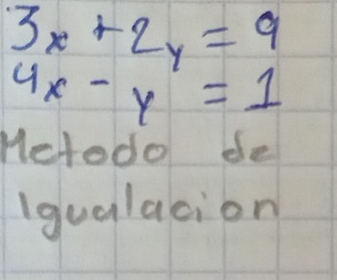 3x + 2y = 9
4x - y = 1
Metodo de
Igualacion